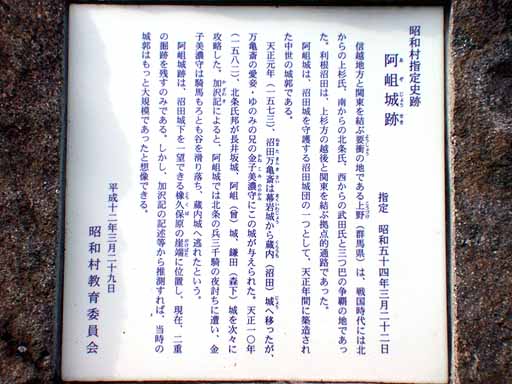 昭和村指定史跡
阿岨城跡
指定 昭和五十四年三月二十二日
信越地方と関東を結ぶ要衝の地である上野(群馬県)は、戦国時代には北
からの上杉氏、南からの北条氏、西からの武田氏と三つ巴の争覇の地であっ
た。利根沼田は、上杉方の越後と関東を結ぶ拠点的通路であった。
阿岨城は、沼田城を守護する沼田城団の一つとして、天正年間に築造され
た中世の城郭である。
天正元年(一五七三)、沼田万亀斎は幕岩城から蔵内(沼田)城へ移ったが、
万亀斎の愛妾・ゆのみの兄の金子美濃守にこの城が与えられた。天正一〇年
(一五八二)、北条氏邦が長井坂城、阿岨(曾)城、鎌田(森下)城を次々に
攻略した。加沢記によると、阿岨城では北条の兵三千騎の夜討ちに遭い、金
子美濃守は騎馬もろとも谷を滑り落ち、蔵内城へ逃れたという。
阿岨城跡は、沼田城下を一望できる橡久保原の崖端に位置し、現在、二重
の囲跡を残すのみである。しかし、加沢記の記述等から推測すれば、当時の
城郭はもっと大規模であったと想像できる。
平成十二年三月二十九日
昭和村教育委員会